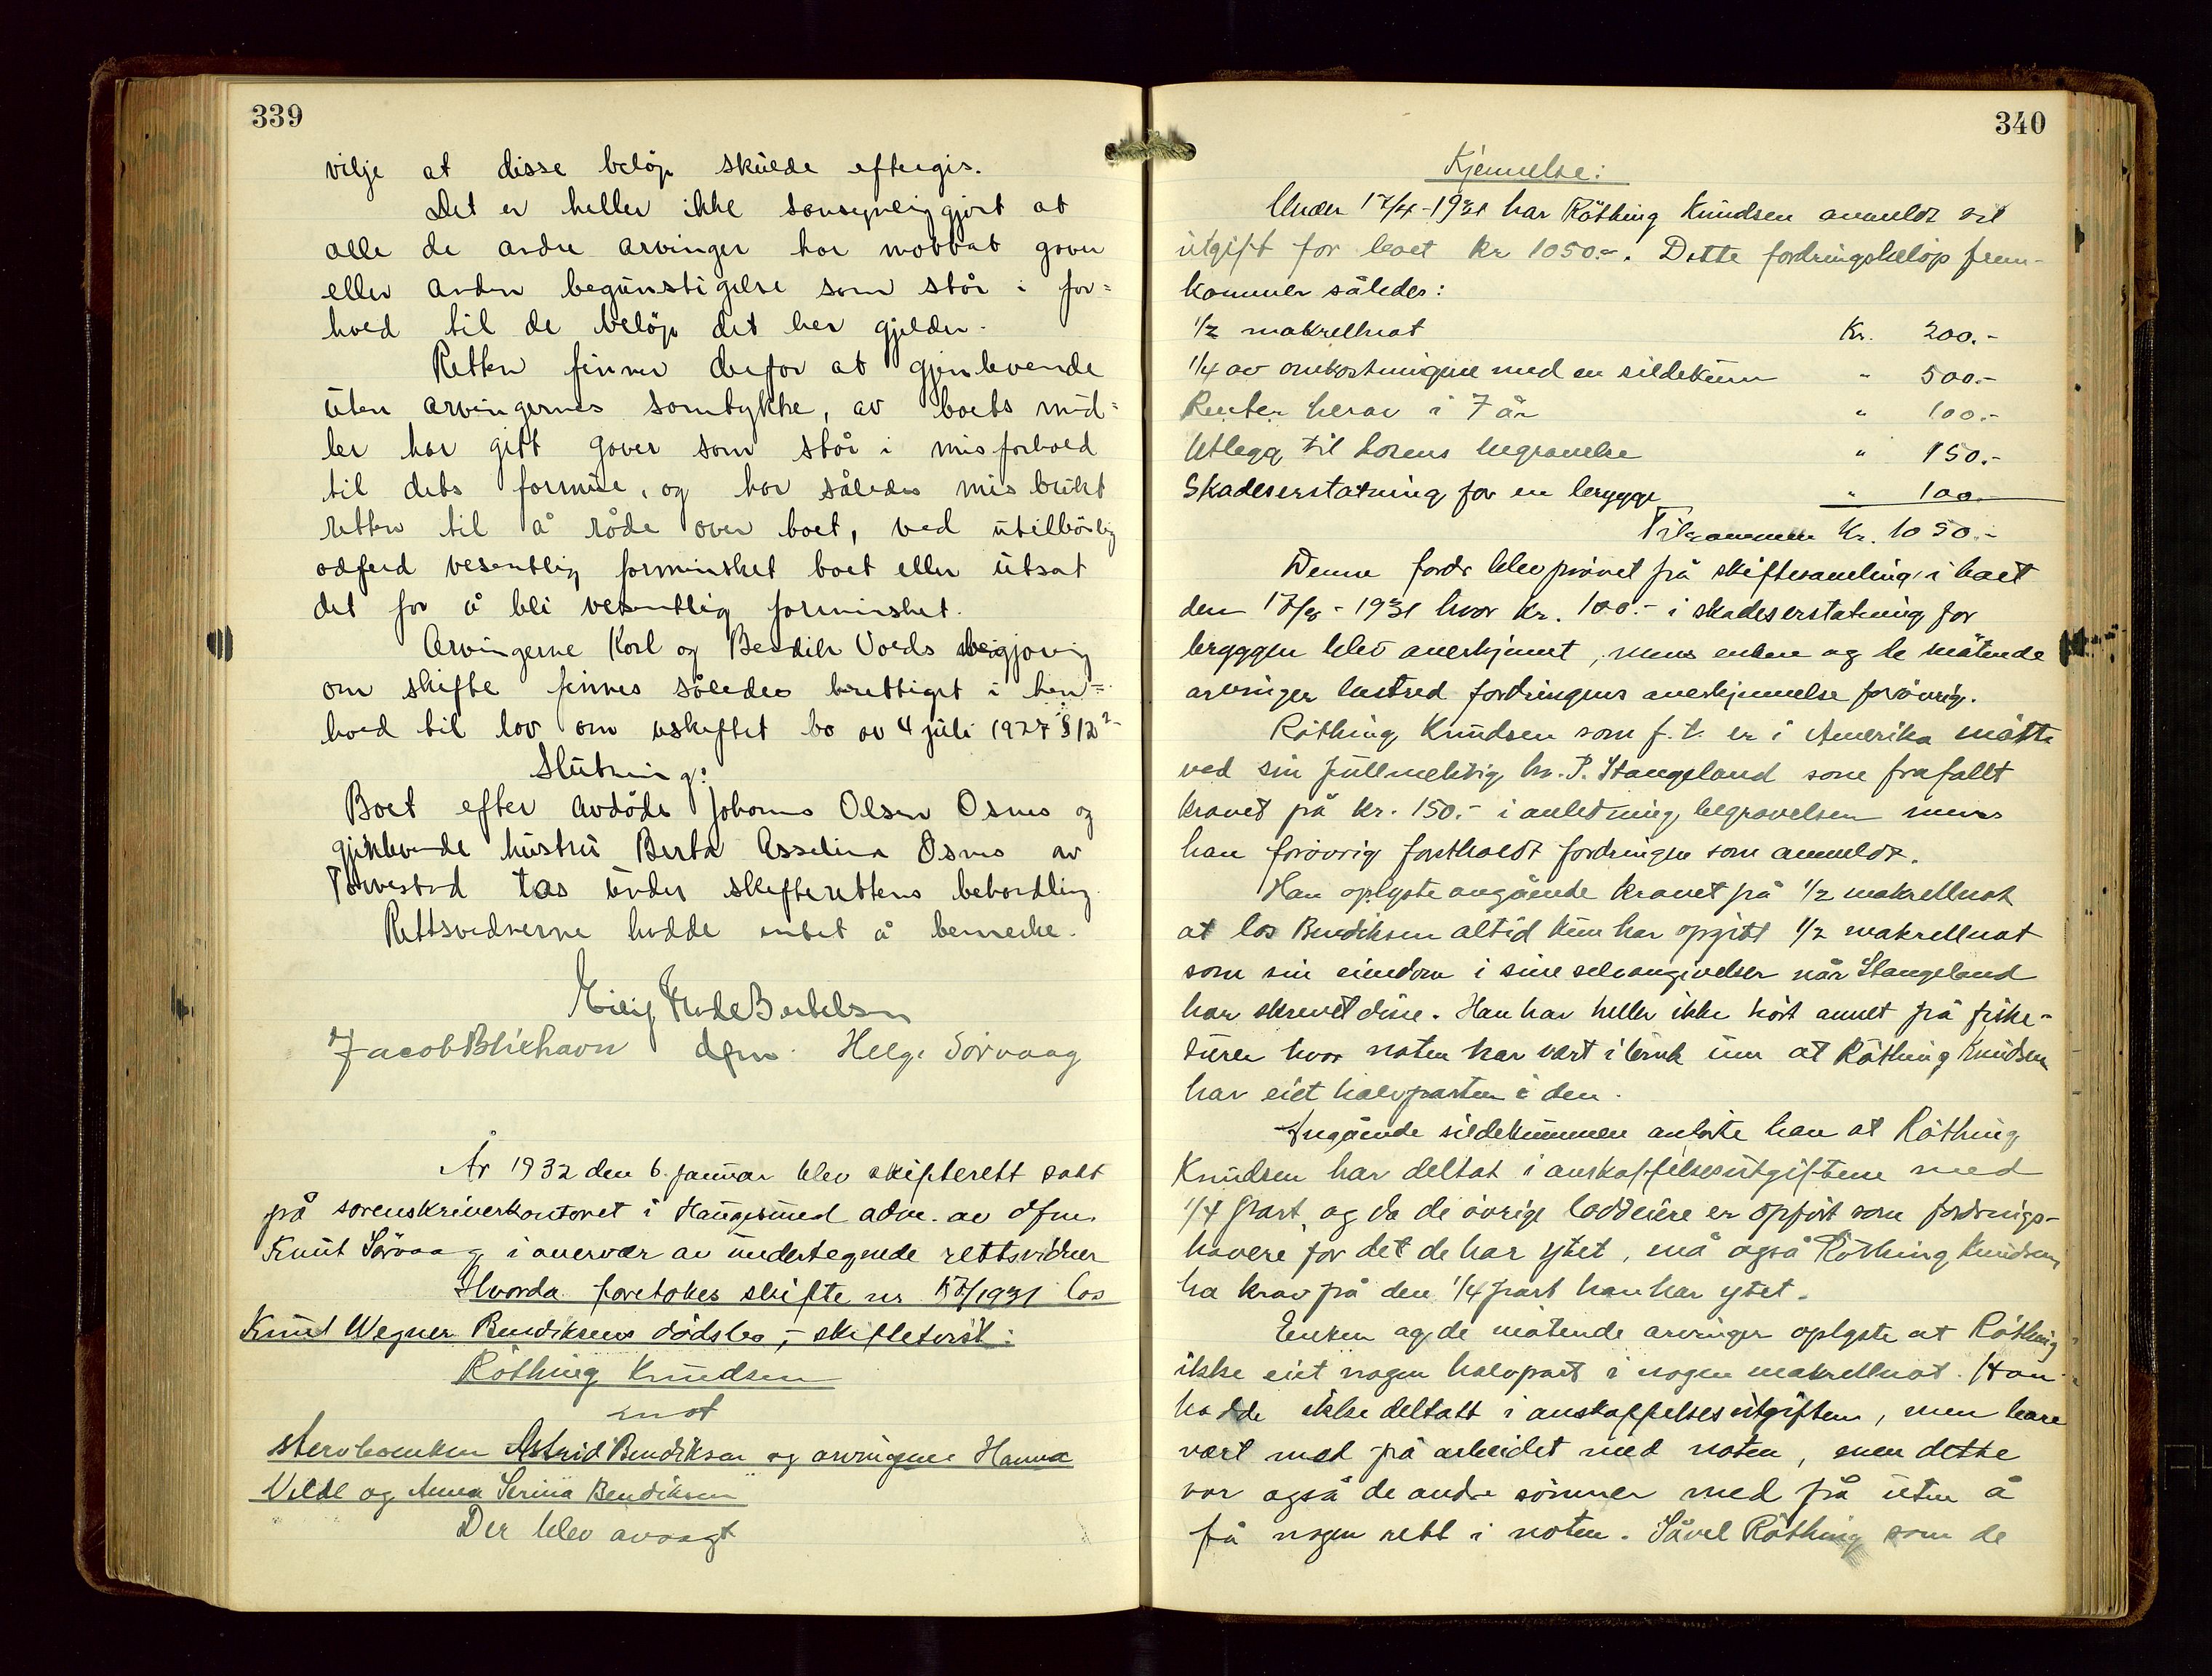 339
vilje at disse beløp skulde eftergis.
Det er heller ikke sansynliggjort at
alle de andre arvinger har mottat gaver
eller anden begunstigelse som står i for=
hold til de beløp det her gjelder.
Retten finner derfor at gjenlevende
uten arvingernes samtykke, av boets mid=
ler har gitt gaver som står i misforhold
til dets formue, og har således misbrukt
retten til å råde over boet, ved utilbørlig
adferd vesentlig forminsket boet eller utsat
det for å bli vesentlig forminsket.
Arvingerne Karl og Bendik Voads begjæring
om skifte finnes således berettiget i hen=
hold til lov om uskiftet bo av 4 juli 1927 § 12²-
Slutning:
Boet efter avdøde Johannes Olsen Osnes og
gjenlevende hustru Berta Asselina Osnes av
Torvestad tas under skifterettens behandling.
Rettsvidnerne hadde intet å bemerke.
Eilif Bertelsen
Jacob Blikhavn dfm. Helge Sørvaag
År 1932 den 6. januar blev skifterett satt
på sorenskriverkontoret i Haugesund adm. av dfm.
Knut Sørvaag i overvær av undertegnede rettsvidner
Hvorda foretokes skifte nr 17/1931 los
Knut Wegner Bendiksens dødsbo, - skiftetvist:
Røthing Knudsen
mot
stervboenken Astrid Bendiksen og arvingene Hanna
Velde og Anna Serina Bendiksen
Der blev avsagt
340
Kjennelse:
Under 17/4-1931 har Røthing Knudsen anmeldt sit
utgift for boet kr 1050.-. Dette fordringsbeløp frem-
kommer således:
1/2 makrellnot Kr. 200.-
1/4 av omkostningene med en sildekum " 500.-
Renter herav i 7 år " 100.-
Utlegg til losens begravelse " 150.-
Skadeserstatning for en brygge " 100.-
Tilsammen Kr. 1050.-
Denne fordr blev prøvet på skiftesamling i boet
den 17/8-1931 hvor kr. 100.- i skadeserstatning for
bryggen blev anerkjennt, mens enken og de møtende
arvinger bestred fordringens anerkjennelse forøvrig.
Røthing Knudsen som f.t. er i Amerika møtte
ved sin fullmektig hr. P. Stangeland som frafallt
kravet på kr. 150.- i anledning begravelsen mens
han forøvrig fastholdt fordringen som anmeldt.
Han oplyste angående kravet på 1/2 makrellnot
at los Bendiksen altid kun har opgitt 1/2 makrellnot
som sin eiendom i sine selvangivelser når Stangeland
har skrevet disse. Han har heller ikke hørt annet på fiske-
turer hvor noten har vært i bruk enn at Røthing Knudsen
har eiet halvparten i den.
Angående sildekummen anførte han at Røthing
Knudsen har deltat i anskaffelsesutgiftene med
1/4 part, og da de øvrige loddeiere er opført som fordrings-
havere for det de har ytet, må også Røthing Knudsen
ha krav på den 1/4 part han har ytet.
Enken og de møtende arvinger oplyste at Røthing
ikke eiet nogen halvpart i nogen makrellnot. Han
hadde ikke deltatt i anskaffelsesutgiftene, men bare
vært med på arbeidet med noten, men dette
var også de andre sønner med på uten å
få nogen rett i noten. Såvel Røthing som de